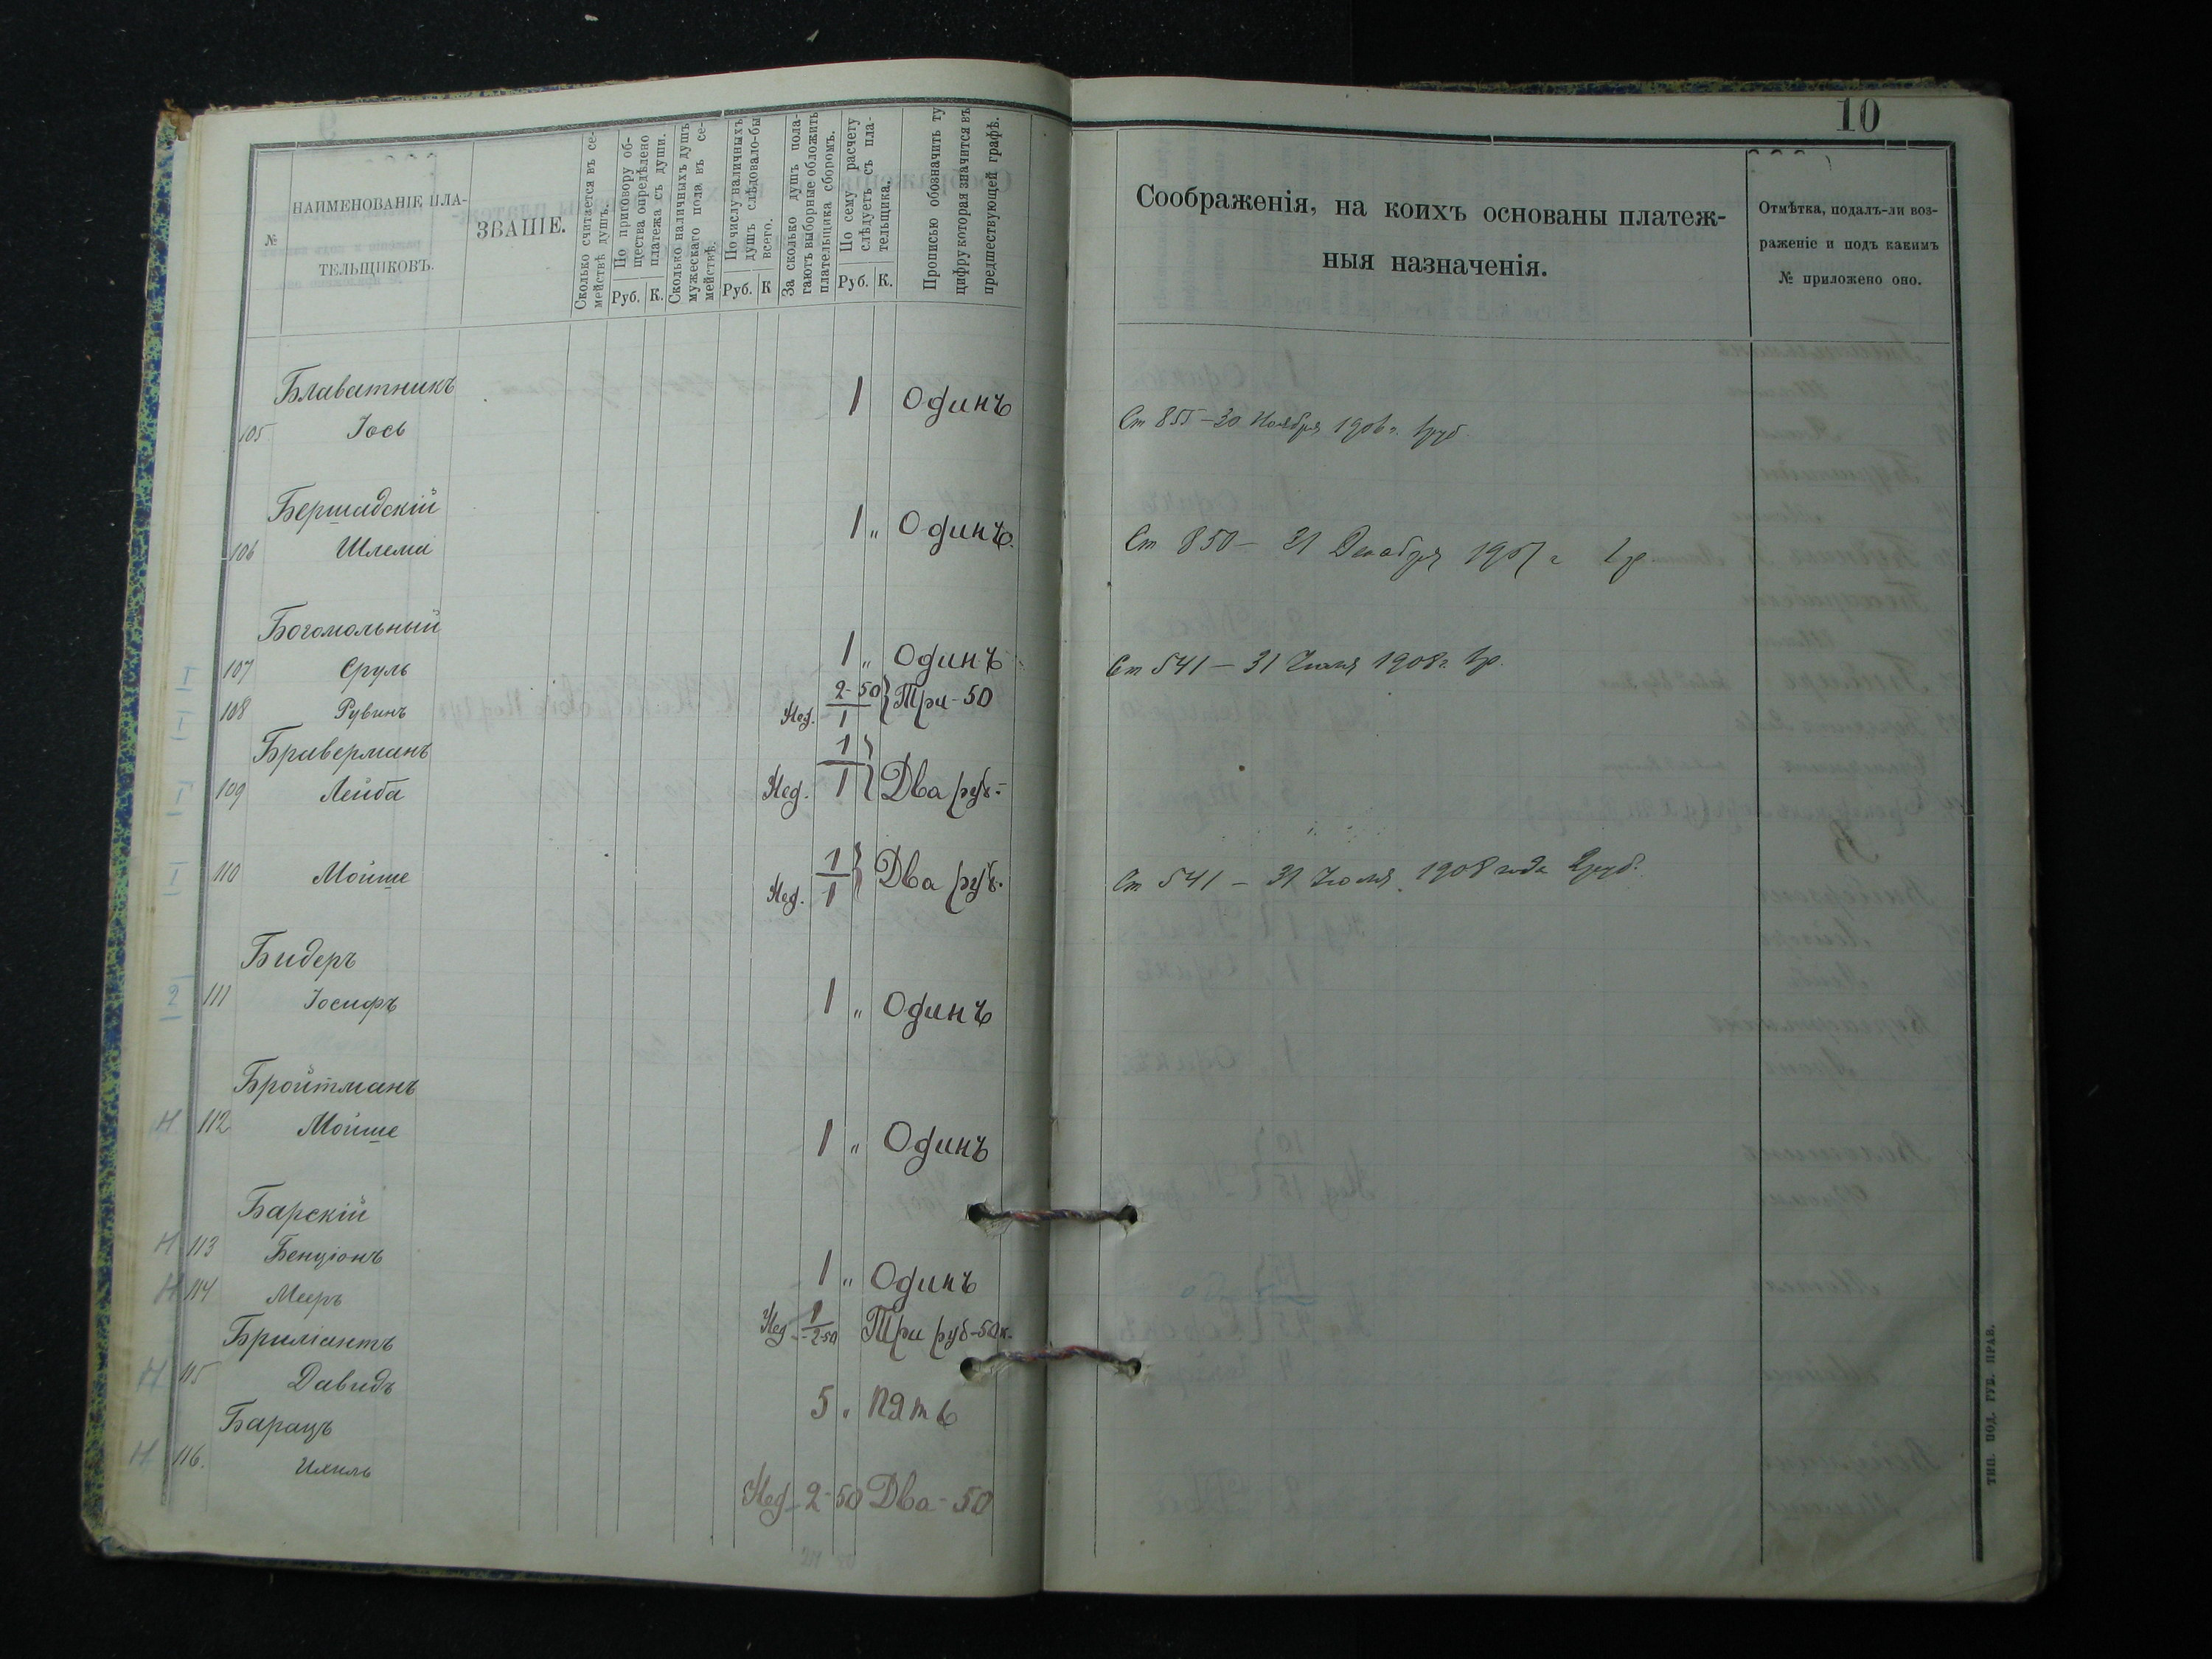 10
№
НАИМЕНОВАНІЕ ПЛА-
ТЕЛЬЩИКОВЪ.
ЗВАНІЕ.
Сколько считается въ се-
мействѣ душъ.
По приговору об-
щества опредѣлено
платежа съ души.
Руб. К.
Сколько наличныхъ душъ
мужескаго пола въ се-
мействѣ.
По числу наличныхъ
душъ слѣдовало-бы
всего.
Руб. К
За сколько душъ пола-
гаютъ выборные обложить
плательщика сборомъ.
По сему расчету
слѣдуетъ съ пла-
тельщика.
Руб. К.
Прописью обозначить ту
цифру которая значится въ
предшествующей графѣ.
Соображенія, на коихъ основаны платеж-
ныя назначенія.
Отмѣтка, подалъ-ли воз-
раженіе и подъ какимъ
№ приложено оно.
Блаватникъ
105 Іось 1 Одинъ Ст 855 – 30 Ноября 1906 г. 1руб
Бершадскій
106 Шлема 1 „ Одинъ. Ст 850 – 31 Декабря 1907 г 1р
Богомольный
I 107 Сруль 1 „ Одинъ Ст 541 – 31 Іюля 1908 г. 1р.
I 108 Рувинъ Нед. 2-50 1 Три-50
Браверманъ
I 109 Лейба Нед. 1 1 Два руб.
I 110 Мойше Нед. 1 1 Два руб. Ст 541 – 31 Іюля 1908 года 2руб.
Бидеръ
2 111 Іосифъ 1 „ Одинъ
Бройтманъ
Н 112 Мойше 1 „ Одинъ
Барскій
Н 113 Бенціонъ 1 „ Одинъ
Н 114 Мееръ Нед 1 2-50 Три руб-50к.
Бриліантъ
Н 115 Давидъ 5 „ Пять
Барацъ
Н 116. Ихиль Нед-2-50 Два-50
ТИП. ПОД. ГУБ. ПРАВ.